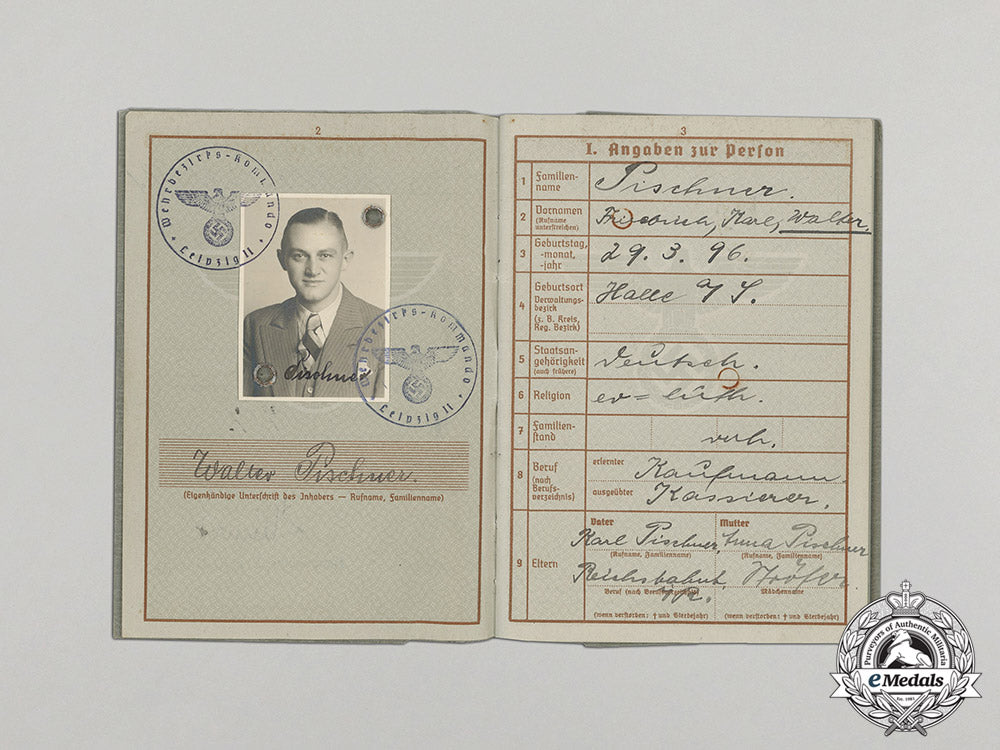 2
Wehrbezirks-Kommando
Leipzig II
Pischner
Wehrbezirks-Kommando
Leipzig II
Walter Pischner.
(Eigenhändige Unterschrift des Inhabers — Rufname, Familienname)
3
I. Angaben zur Person
1 Familien-
name
Pischner.
2 Vornamen
(Rufname
unterstreichen)
Friedrich, Karl, Walter.
3 Geburtstag,
-monat,
-jahr
29. 3. 96.
4 Geburtsort
Verwaltungs-
bezirk
(z. B. Kreis,
Reg. Bezirk)
Halle a/S.
5 Staatsan-
gehörigkeit
(auch frühere)
deutsch.
6 Religion
ev = luth.
7 Familien-
stand
verh.
8 Beruf
(nach
Berufs-
verzeichnis)
erlernter
Kaufmann.
ausgeübter
Kassierer.
9 Eltern
Vater
Karl Pischner,
(Rufname, Familienname)
Beruf (nach Berufsverzeichnis)
(wenn verstorben: † und Sterbejahr)
Mutter
Anna Pischner
(Rufname, Familienname)
Mädchenname
(wenn verstorben: † und Sterbejahr)
Purveyors of Authentic Militaria
eMedals
Est. 1985